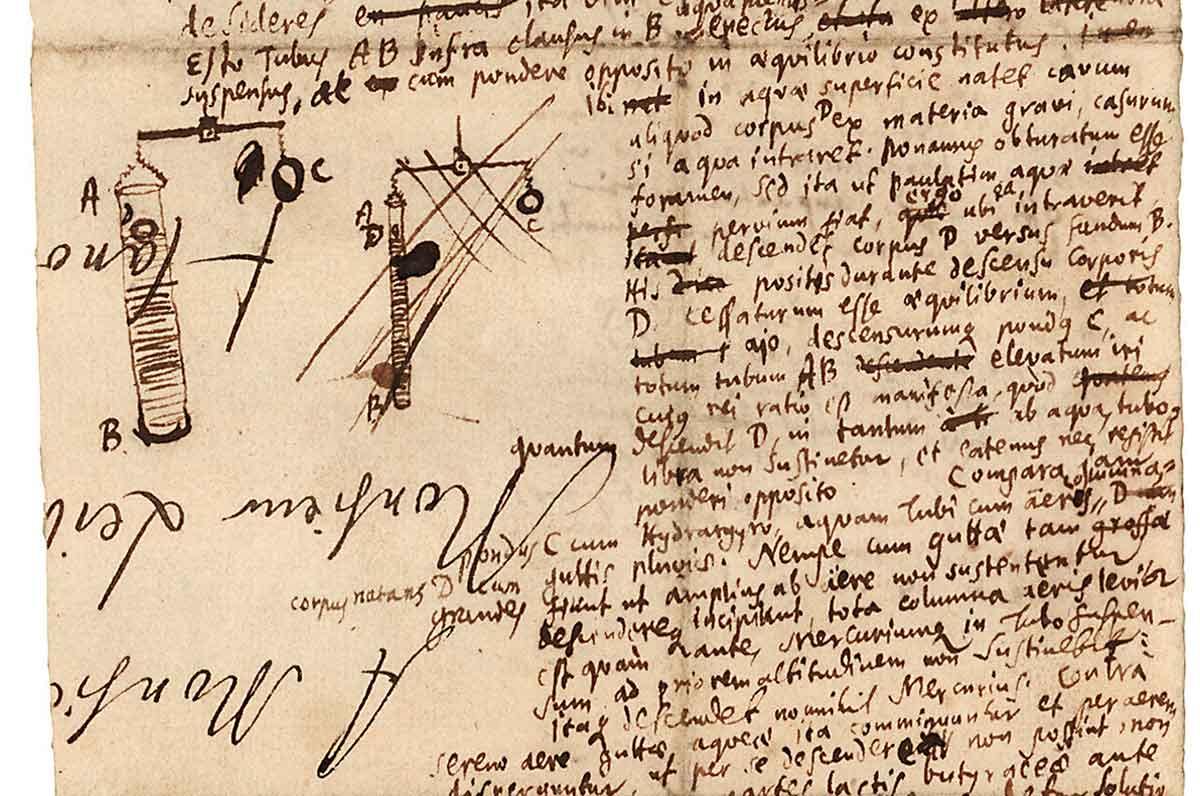 desideres
Esto Tubus AB infra clausus in B. erectus, ex
suspensus, et cum pondere opposito in æquilibrio constitutus.
ibi in aquæ superficie natet cavum
aliquod corpus D ex materia gravi, casurum
si aqua intraret. Ponamus obturatum esse
foramen, sed ita ut paulatim aquæ
pervium fiat, ergo ubi ea intraverit,
descendet corpus D versus fundum B.
His positis durante descensu corporis
D. cessaturum esse æquilibrium,
ajo, descensurumq pondq C, ac
totum tubum AB elevatum iri
cujq rei ratio est manifesta, quod
quantum descendit D, in tantum ab aqua, tuboq
libra non sustinetur, et eatenus neq resistit
ponderi opposito. Compara jam
pondus C cum Hydrargyro, aquam Tubi cum aëris columna,
corpus natans D cum guttis pluviis. Nempe cum guttæ tam
grandes fiunt ut amplius ab aëre non sustententur
descendereq incipiant, tota columna aëris levior
est quam ante, Mercuriumq in Tubo suspen-
sum ad priorem altitudinem non sustinebit
itaq descendet nonnihil Mercurius. Contra
sereno aere guttæ aqueæ ita comminuuntur et per aerem
disperguntur, ut per se descendere non possint, non
partes lactis butyraceæ ante
A
B
C
D
A
D
B
C
Monsieur
A Monsie